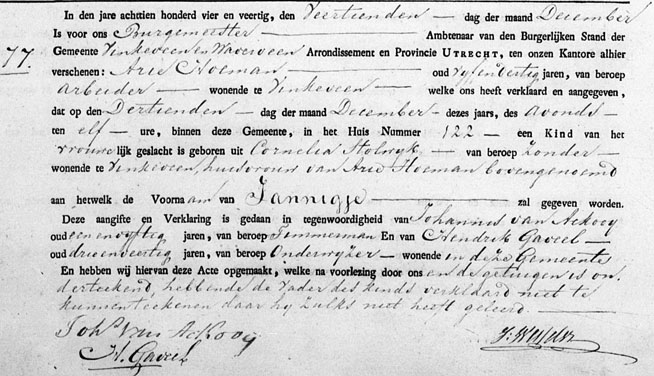 In den jare achttien honderd vier en veertig, den Veertienden dag der maand December
Is voor ons Burgemeester Ambtenaar van den Burgerlijken Stand der
77. Gemeente Vinkeveen en Waverveen Arrondissement en Provincie UTRECHT, ten onzen Kantore alhier
verschenen: Arie Hoeman oud vyfendertig jaren, van beroep
arbeider wonende te Vinkeveen welke ons heeft verklaard en aangegeven,
dat op den Dertienden dag der maand December dezes jaars, des avonds
ten elf ure, binnen deze Gemeente, in het Huis Nummer 122 een Kind van het
vrouwelijk geslacht is geboren uit Cornelia Stolwyk van beroep zonder
wonende te Vinkeveen, huisvrouw van Arie Hoeman bovengenoemd
aan hetwelk de Voornaam van Jannigje zal gegeven worden.
Deze aangifte en Verklaring is gedaan in tegenwoordigheid van Johannes van Ackooy
oud eenenvyftig jaren, van beroep Timmerman En van Hendrik Gaveel
oud drieenveertig jaren, van beroep Onderwyzer wonende in deze Gemeente
En hebben wij hiervan deze Acte opgemaakt, welke na voorlezing door ons en de getuigen is on-
derteekend, hebbende de Vader des kinds verklaard niet te
kunnen teekenen daar hy zulks niet heeft geleerd.
Johs van Ackooy
H. Gaveel